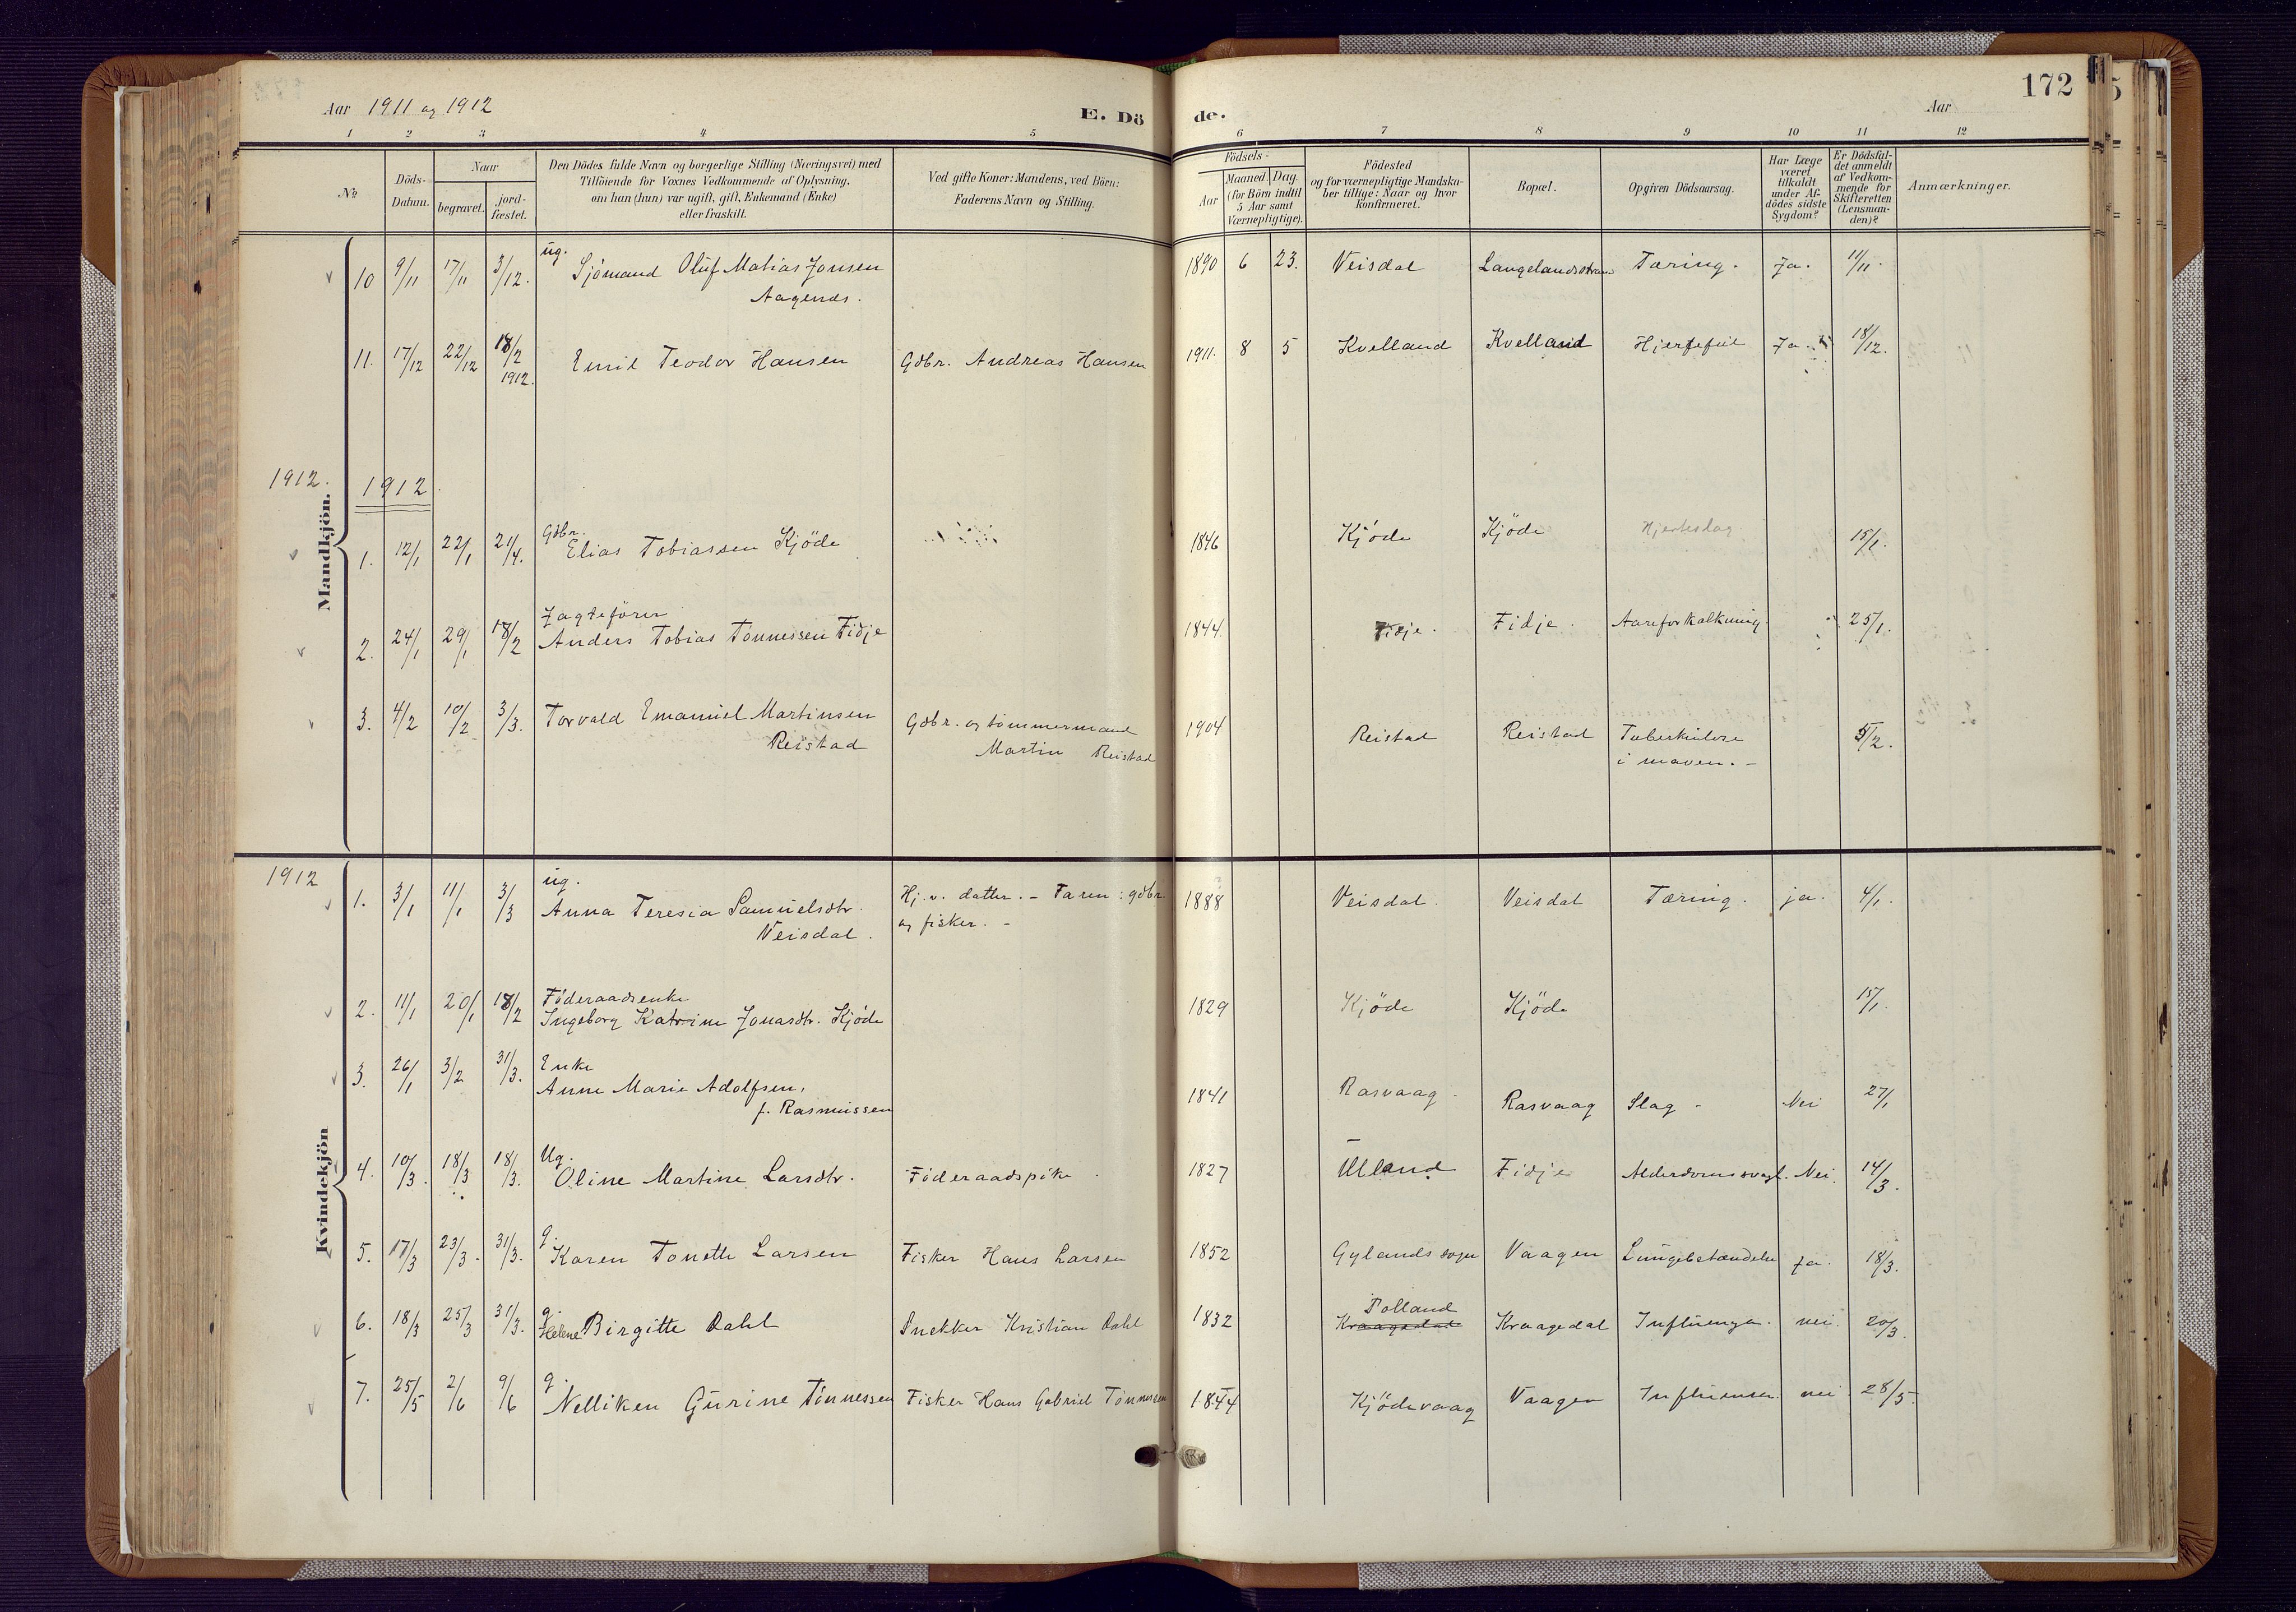 Aar 1911 og 1912 E. Dö de. Aar 172
1 2 3 4 5 6 7 8 9 10 11 12
No
Döds-
Datum.
Naar
begravet.
jord-
fæstet.
Den Dödes fulde Navn og borgerlige Stilling (Næringsvei) med
Tilföiende for Voxnes Vedkommende af Oplysning,
om han (hun) var ugift, gift, Enkemand (Enke)
eller fraskilt.
Ved gifte Koner: Mandens, ved Börn:
Faderens Navn og Stilling.
Födsels-
Aar
Maaned. Dag.
(for Börn indtil
5 Aar samt
Værnepligtige).
Födested
og for værnepligtige Mandska-
ber tillige: Naar og hvor
konfirmeret.
Bopæl.
Opgiven Dödsaarsag.
Har Læge
været
tilkaldt
under Af-
dödes sidste
Sygdom?
Er Dödsfal-
det anmeldt
af Vedkom-
mende for
Skifteretten
(Lensman-
den)?
Anmærkninger.
Mandkjön.
ug.
10 9/11 17/11 3/12. Sjömand Oluf Matias Jonsen 1890 6 23. Veisdal Langelandsstrand Tæring. Ja. 11/11.
Aagenes.
11. 17/12 22/12 18/2 1912. Emil Teodor Hansen Gdbr. Andreas Hansen 1911. 8 5 Kvelland Kvelland Hjertefeil Ja. 18/12.
1912. 1912
Gdbr.
1. 12/1 22/1 21/4. Elias Tobiassen Kjöde 1846 Kjöde Kjöde Hjerteslag 15/1.
Jagteförer
2. 24/1 29/1 18/2 Anders Tobias Tönnessen Fidje 1844. Fidje. Fidje. Aareforkalkning. 25/1.
3. 4/2 10/2 3/3. Torvald Emanuel Martinsen Gdbr. og tömmermand 1904 Reistad Reistad Tuberkulose 5/2.
Reistad Martin Reistad i maven. -
Kvindekjön
1912
ug.
1. 3/1 11/1 3/3 Anna Teresia Samuelsdtr. Hj. v. datter. - Faren: gdbr. 1888 Veisdal. Veisdal Tæring. ja. 4/1.
Veisdal. og fisker. -
Föderaadsenke
2. 11/1 20/1 18/2 Ingeborg Katrine Jonasdtr. Kjöde 1829 Kjöde Kjöde 15/1.
Enke
3. 26/1 3/2 31/3. Anne Marie Adolfsen, 1841 Rasvaag. Rasvaag Slag - Nei 27/1
f. Rasmussen
Ug.
4. 10/3. 18/3 18/3. Oline Martine Larsdtr. Föderaadspike. 1827 Ulland Fidje Alderdomssvagh. Nei. 14/3.
g.
5. 17/3 23/3. 31/3. Karen Tonette Larsen Fisker Hans Larsen 1852 Gylands sogn Vaagen Lungebetændelse Ja. 18/3.
g.
6. 18/3 25/3 31/3. Helene Birgitte Dahl Snekker Kristian Dahl 1832 Polland Kraagedal Kraagedal Influenza. nei. 20/3.
g.
7. 25/5 2/6 9/6 Nelliken Gurine Tönnessen Fisker Hans Gabriel Tönnessen 1844 Kjödevaag Vaagen Influensa. nei. 28/5.